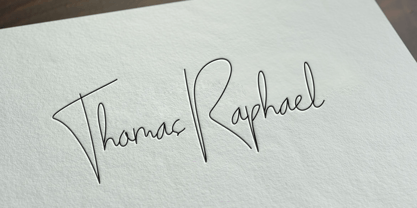 Thomas Raphael